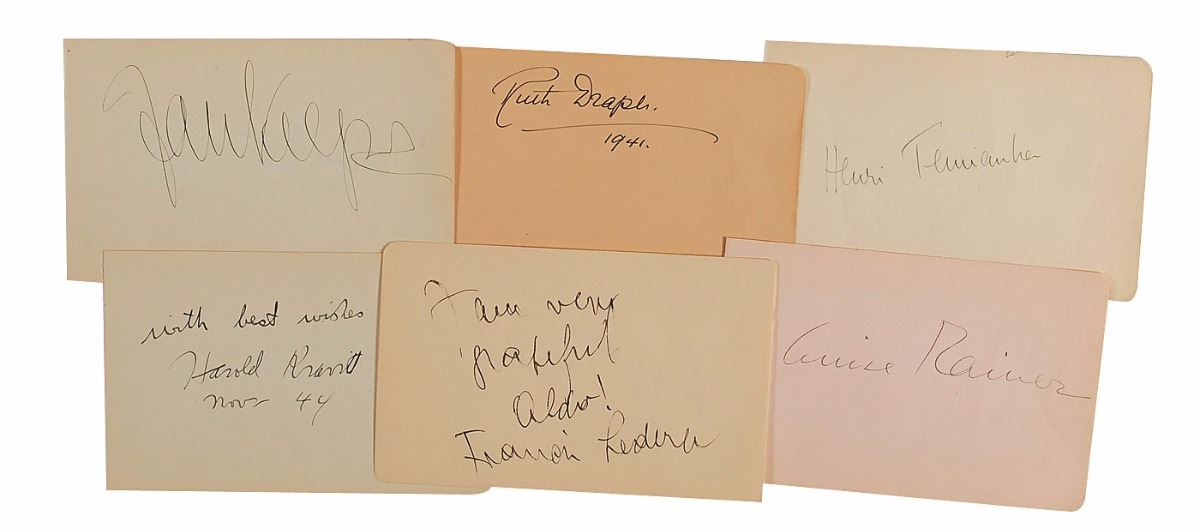 Jan Kiepura
Ruth Draper.
1941.
Henri Temianka
with best wishes
Harold Kravitt
Nov 44
I am very
grateful
Aldo!
Francis Lederer
Luise Rainer